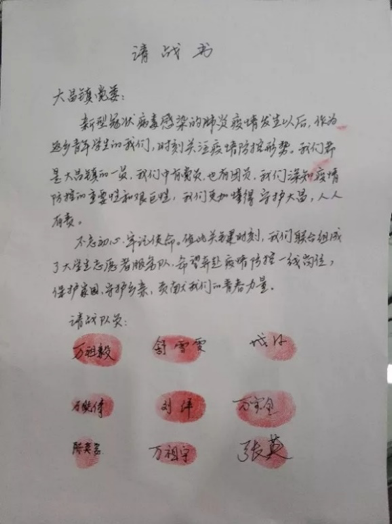 请战书
大昌镇党委:
新型冠状病毒感染的肺炎疫情发生以后,作为
返乡青年学生的我们,时刻关注疫情防控形势。我们都
是大昌镇的一员,我们中有党员,也有团员,我们深知疫情
防控的重要性和艰巨性,我们更加懂得守护大昌,人人
有责。
不忘初心、牢记使命。值此关键时刻,我们联合组成
了大学生志愿者服务队,希望奔赴疫情防控一线岗位,
保护家园、守护乡亲,贡献我们的青春力量。
请战队员:
万祖毅 舒雪雯
刘洋
万祖宇 张英